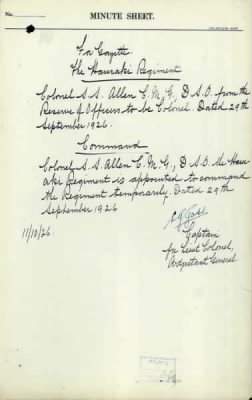 No.
MINUTE SHEET.
For Gazette
The Hauraki Regiment
Colonel S. S. Allen C. M. G., D S.O. from the
Reserve of Officers to be Colonel. Dated 29th
September 1926.
Command
Colonel S. S. Allen C. M. G., D. S.O. the Haur
aki Regiment is appointed to command
the Regiment temporarily. Dated 29th
September 1926
11/10/26.
Captain
for Lieut Colonel,
Adjutant General